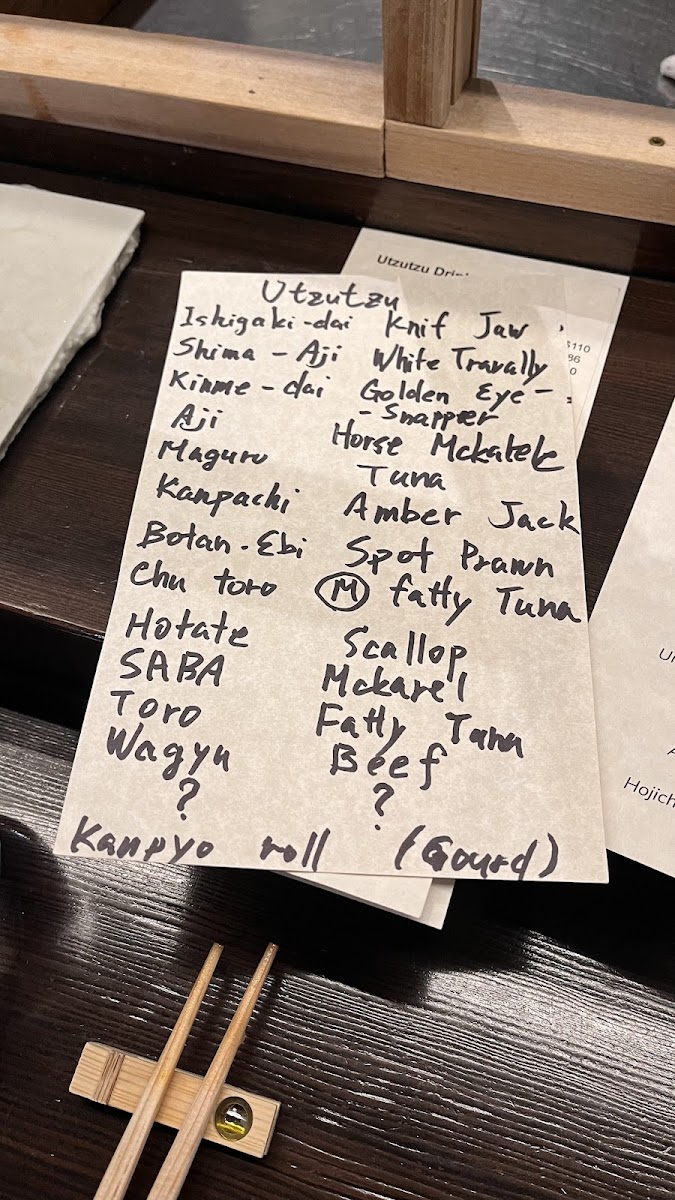 Utzutzu Drin
$110
86
0
Utzutzu
Ishigaki-dai Knif Jaw
Shima - Aji White Travally
Kinme - dai Golden Eye -
- Snapper
Aji Horse Mckalele
Maguro Tuna
Kanpachi Amber Jack
Botan-Ebi Spot Prawn
Chu toro M fatty Tuna
Hotate Scallop
SABA Mckarel
Toro Fatty Tuna
Wagyu Beef
? ?
Kanpyo roll (Gourd)
Hojich